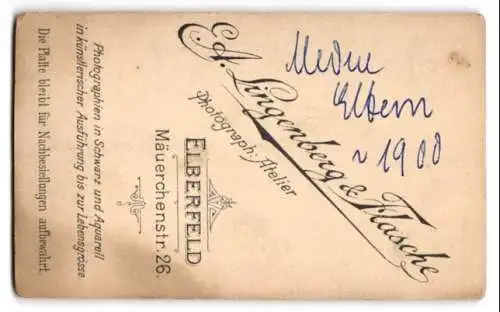 E. A. Lingenberg & Flasche
Photograph: Atelier
ELBERFELD
Mäuerchenstr. 26.
Photographien in Schwarz und Aquarell
in künstlerischer Ausführung bis zur Lebensgrösse.
Die Platte bleibt für Nachbestellungen aufbewahrt.
Meine
Eltern
~ 1900